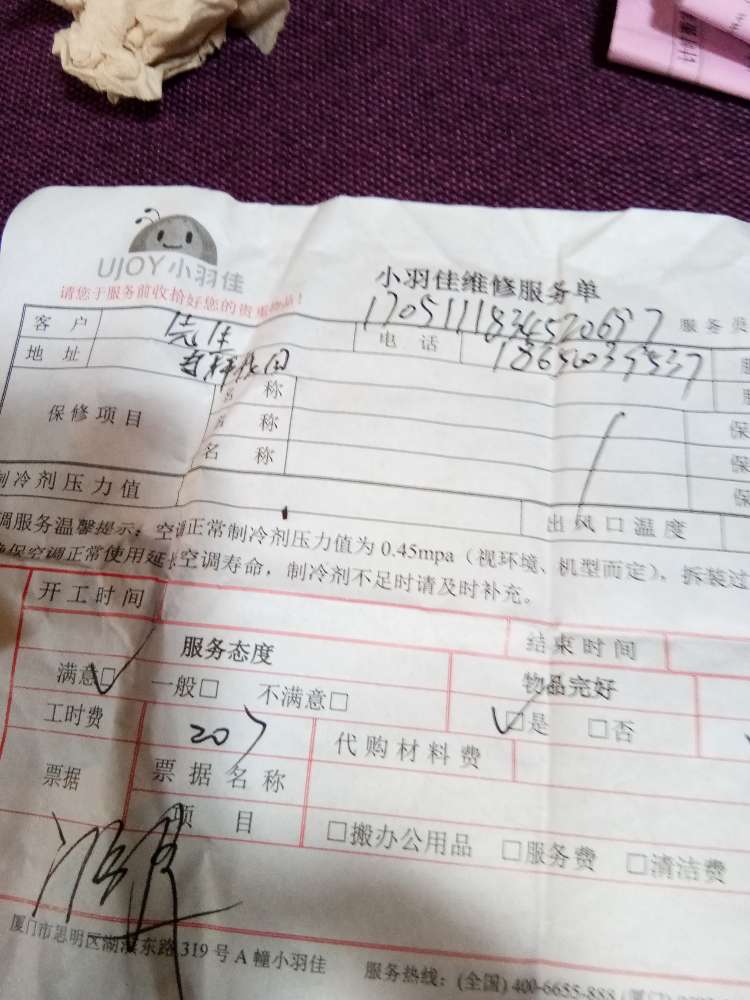 UJOY小羽佳
小羽佳维修服务单
请您于服务前收拾好您的贵重物品！
服务类
客 户
电 话
地 址
保修项目
名 称
名 称
名 称
保
保
保
制冷剂压力值
出风口温度
调服务温馨提示：空调正常制冷剂压力值为 0.45mpa（视环境、机型而定），拆装过
确保空调正常使用延长空调寿命，制冷剂不足时请及时补充。
开工时间
结束时间
服务态度
物品完好
满意□ 一般□ 不满意□
□是 □否
工时费
207
代购材料费
票据
票据名称
项 目
□搬办公用品 □服务费 □清洁费
厦门市思明区湖滨东路 319 号 A 幢小羽佳 服务热线：(全国) 400-6655-888